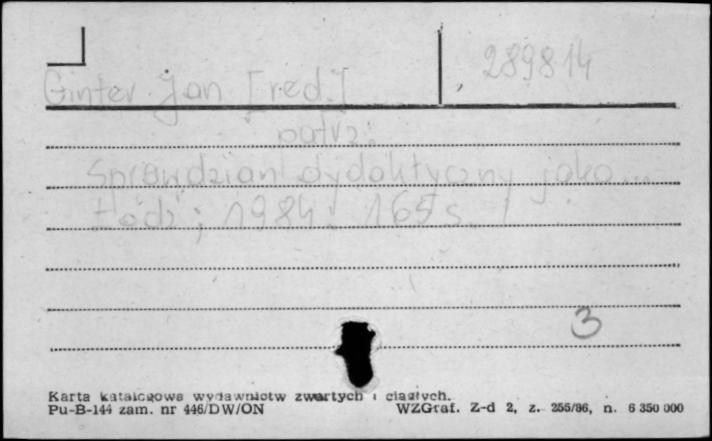 289814
Ginter Jan [red.]
patrz:
Sprawdzian dydaktyczny jako...
Łódź; 1984. 165 s.
3
Karta katalogowa wydawnictw zwartych i ciągłych.
Pu-B-144 zam. nr 446/DW/ON WZGraf. Z-d 2, z. 255/86, n. 6 350 000